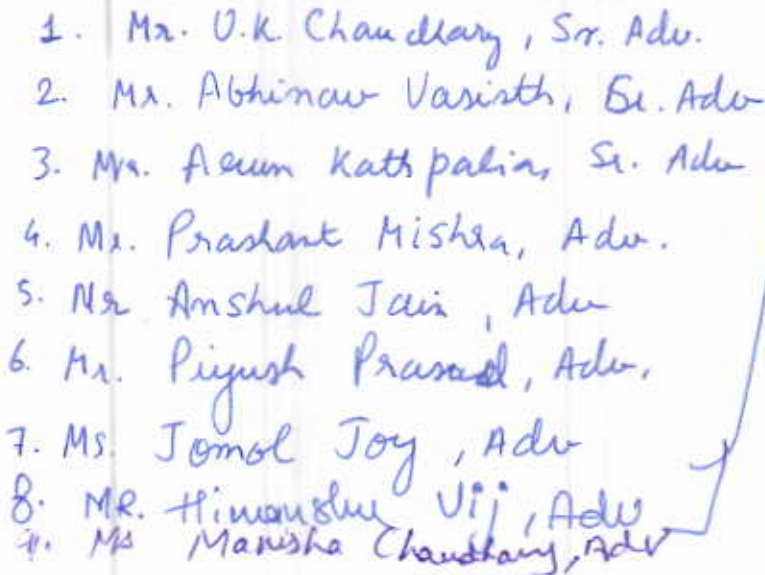 1. Mr. U.K. Chaudhary, Sr. Adv.
2. Mr. Abhinav Vasisth, Sr. Adv
3. Mr. Arun Kathpalia, Sr. Adv
4. Mr. Prashant Mishra, Adv.
5. Mr Anshul Jain, Adv
6. Mr. Piyush Prasad, Adv.
7. Ms. Jomol Joy, Adv
8. MR. Himanshu Vij, Adv
9. Ms Manisha Chaudhary, Adv